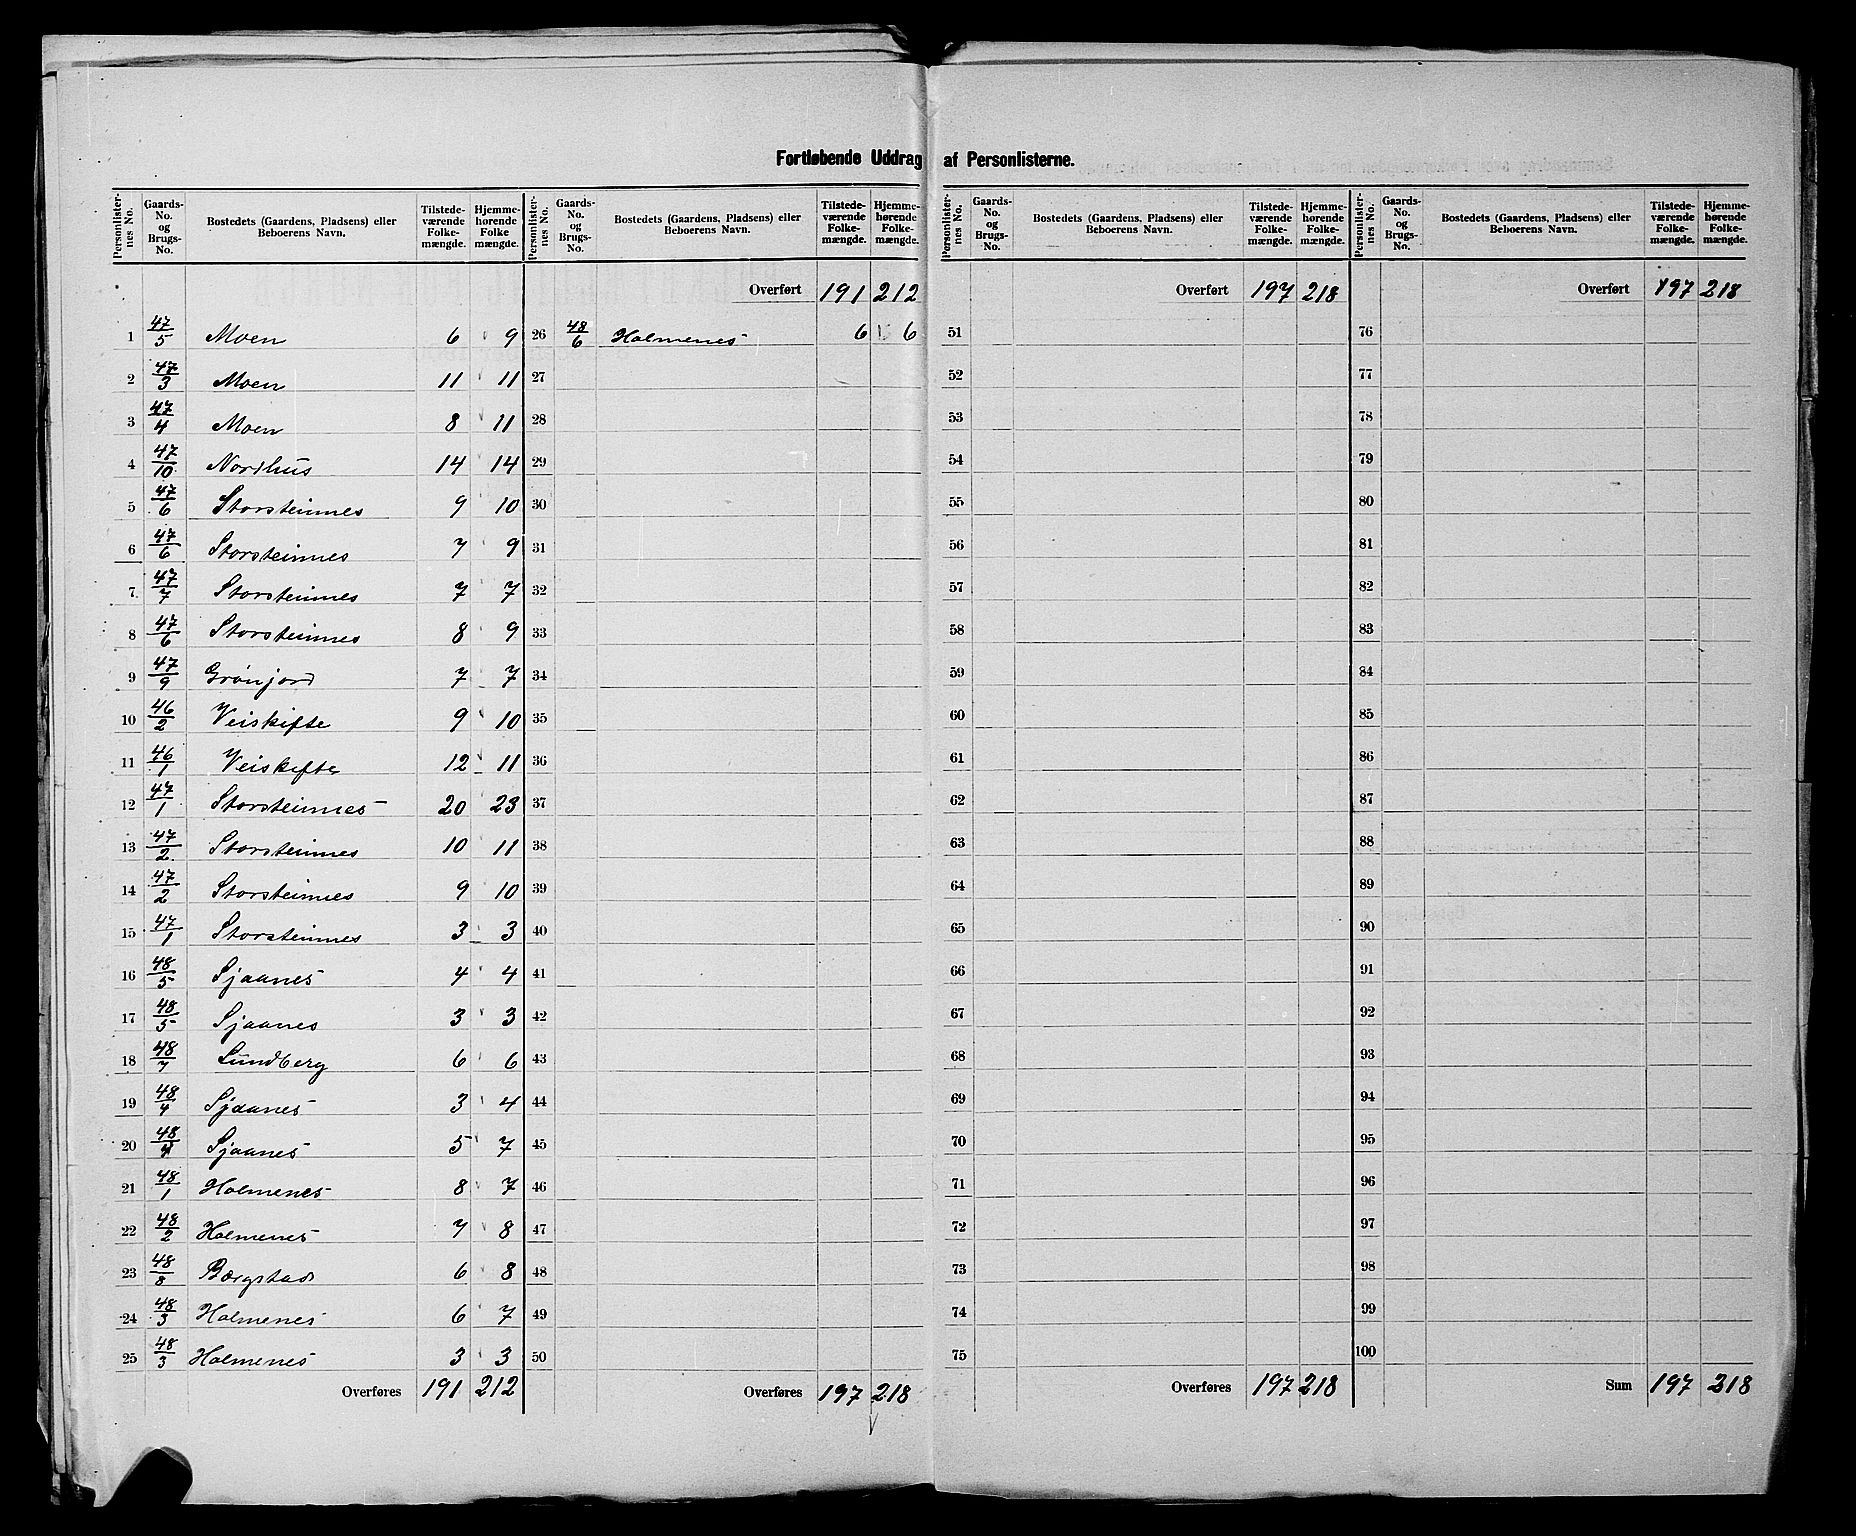 Fortløbende Uddrag af Personlisterne.
Personlisternes No. | Gaards-No. og Brugs-No. | Bostedets (Gaardens, Pladsens) eller Beboerens Navn. | Tilstedeværende Folkemængde. | Hjemmehørende Folke mængde.
1 47/5 Moen 6 9
2 47/3 Moen 11 11
3 47/4 Moen 8 11
4 47/10 Nordhus 14 14
5 47/6 Storsteinnes 9 10
6 47/6 Storsteinnes 7 9
7 47/7 Storsteinnes 7 7
8 47/6 Storsteinnes 8 9
9 47/9 Grønjord 7 7
10 46/2 Veiskifte 9 10
11 46/1 Veiskifte 12 11
12 47/1 Storsteinnes 20 23
13 47/2 Storsteinnes 10 11
14 47/2 Storsteinnes 9 10
15 47/1 Storsteinnes 3 3
16 48/5 Sjaanes 4 4
17 48/5 Sjaanes 3 3
18 48/7 Lundberg 6 6
19 48/4 Sjaanes 3 4
20 48/4 Sjaanes 5 7
21 48/1 Holmenes 8 7
22 48/2 Holmenes 7 8
23 48/8 Bergstad 6 8
24 48/3 Holmenes 6 7
25 48/3 Holmenes 3 3
Overføres 191 212
Personlisternes No. | Gaards-No. og Brugs-No. | Bostedets (Gaardens, Pladsens) eller Beboerens Navn. | Tilstedeværende Folkemængde. | Hjemmehørende Folkemængde.
Overført 191 212
26 48/6 Holmenes 6 6
27
28
29
30
31
32
33
34
35
36
37
38
39
40
41
42
43
44
45
46
47
48
49
50
Overføres 197 218
Personlisternes No. | Gaards-No. og Brugs-No. | Bostedets (Gaardens, Pladsens) eller Beboerens Navn. | Tilstedeværende Folkemængde. | Hjemmehørende Folkemængde.
Overført 197 218
51
52
53
54
55
56
57
58
59
60
61
62
63
64
65
66
67
68
69
70
71
72
73
74
75
Overføres 197 218
Personlisternes No. | Gaards-No. og Brugs-No. | Bostedets (Gaardens, Pladsens) eller Beboerens Navn. | Tilstedeværende Folkemængde. | Hjemmehørende Folkemængde.
Overført 197 218
76
77
78
79
80
81
82
83
84
85
86
87
88
89
90
91
92
93
94
95
96
97
98
99
100
Sum 197 218